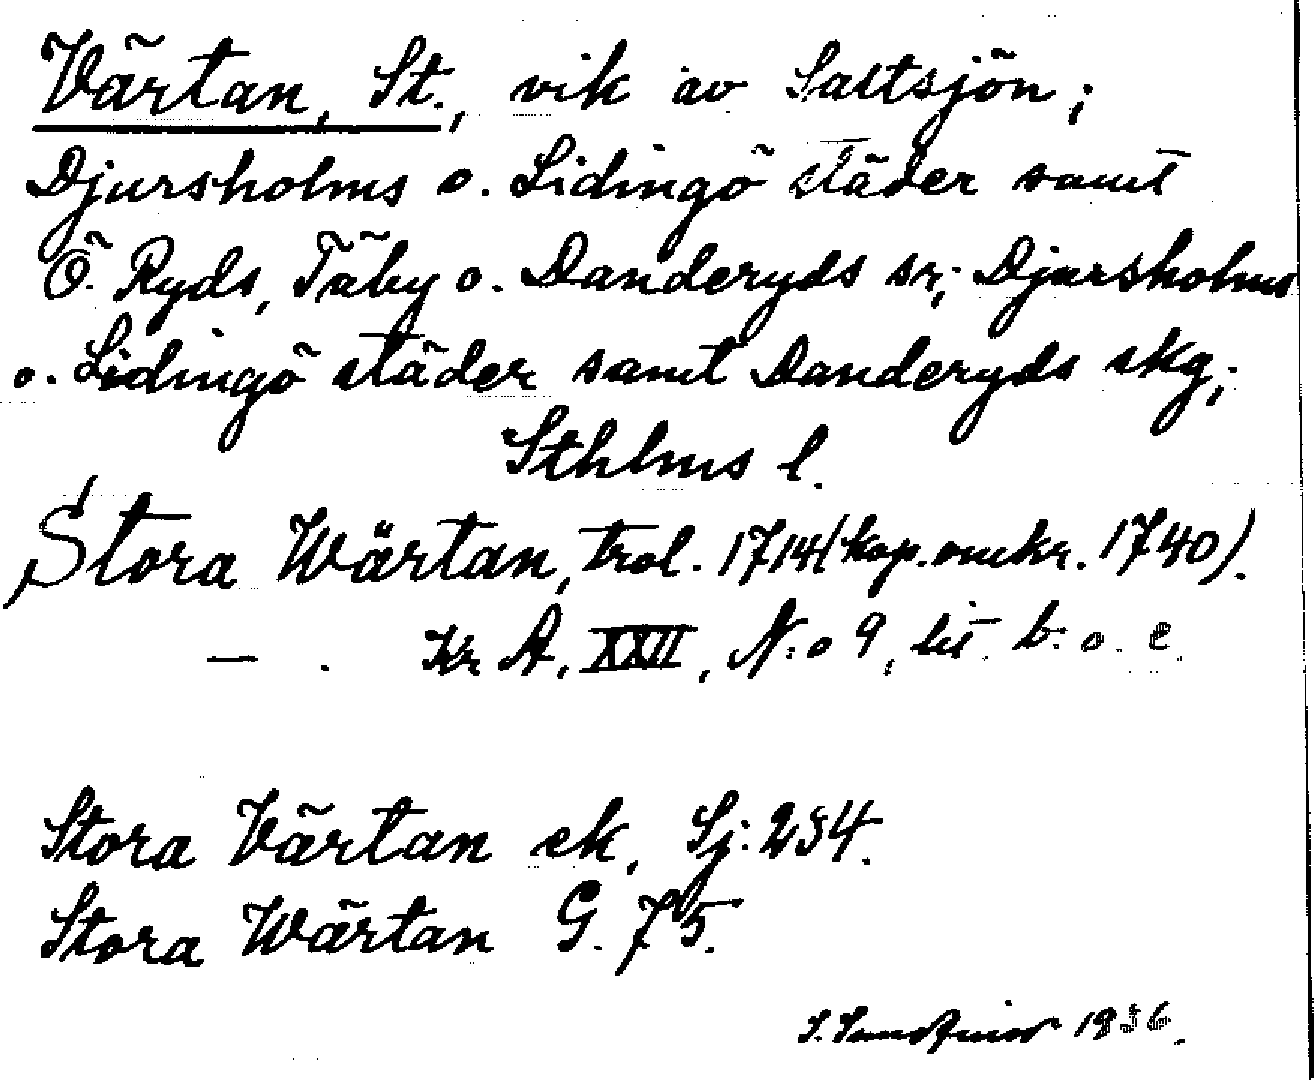 Värtan, St., vik av Saltsjön;
Djursholms o. Lidingö städer samt
Ö. Ryds, Täby o. Danderyds sr; Djursholms
o. Lidingö städer samt Danderyds skg;
Sthlms l.
Stora Wärtan, trol. 1714 (kop. omkr. 1740).
— . Kr A, XXII, N:o 9, lit. b. o. c.
Stora Värtan ek, Sj: 254.
Stora Wärtan G. 75.
1936.